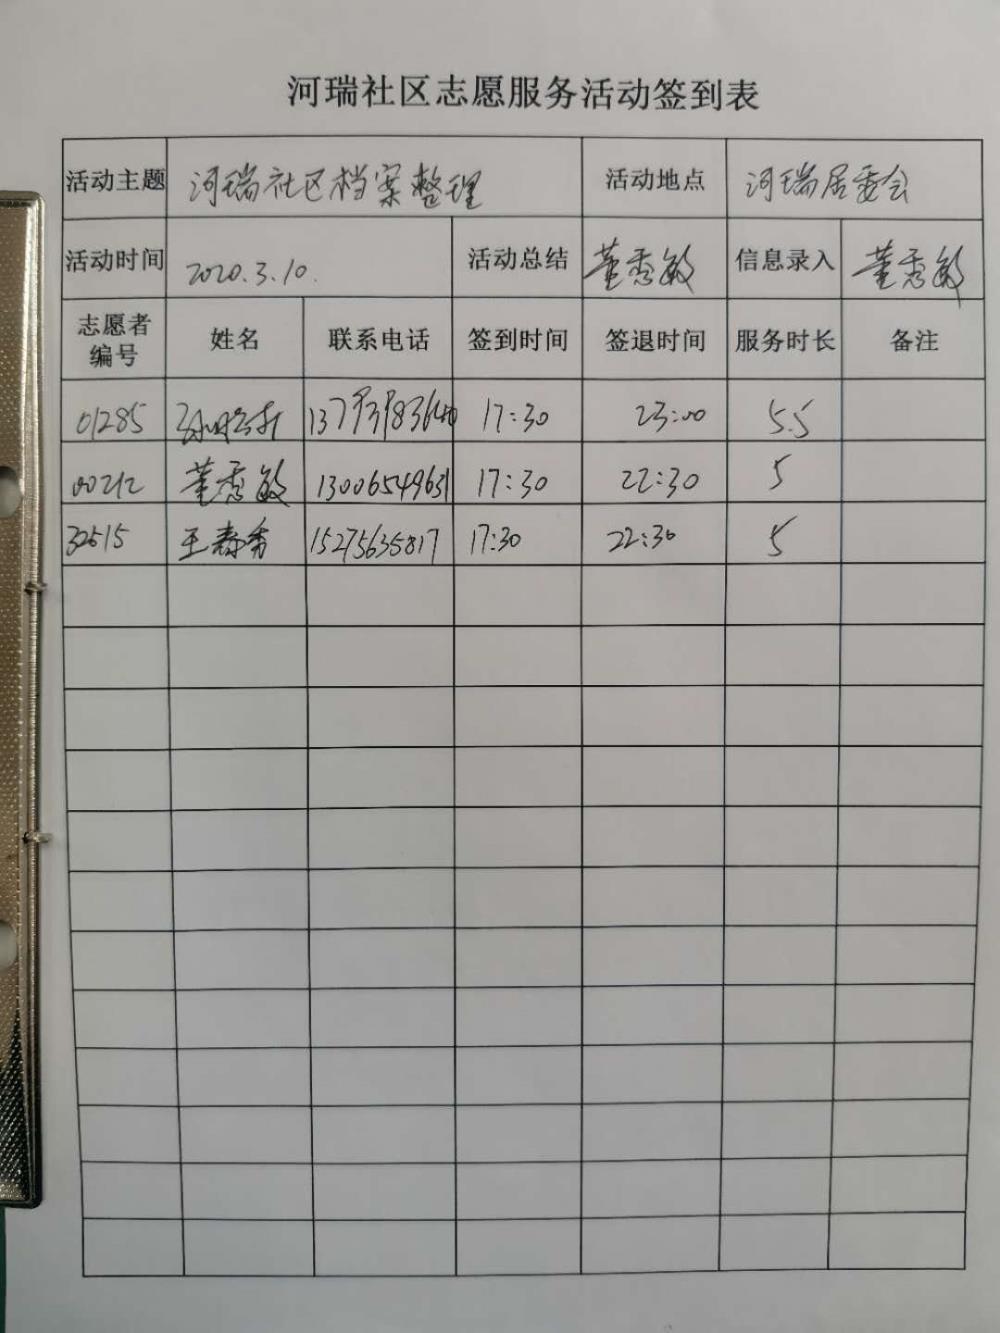 河瑞社区志愿服务活动签到表
活动主题 河瑞社区档案整理 活动地点 河瑞居委会
活动时间 2020.3.10. 活动总结 董秀敏 信息录入 董秀敏
志愿者编号 姓名 联系电话 签到时间 签退时间 服务时长 备注
01285 17:30 23:00 5.5
00212 董秀敏 13006549631 17:30 22:30 5
32515 王春香 15275635817 17:30 22:30 5